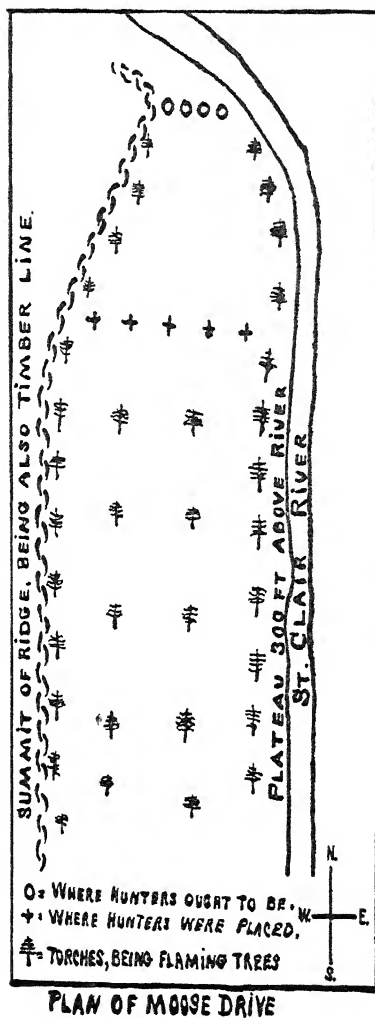 SUMMIT OF RIDGE, BEING ALSO TIMBER LINE.
PLATEAU 300 FT ABOVE RIVER
ST. CLAIR RIVER
O = WHERE HUNTERS OUGHT TO BE.
+ = WHERE HUNTERS WERE PLACED.
= TORCHES, BEING FLAMING TREES
N.
W. E.
S.
PLAN OF MOOSE DRIVE